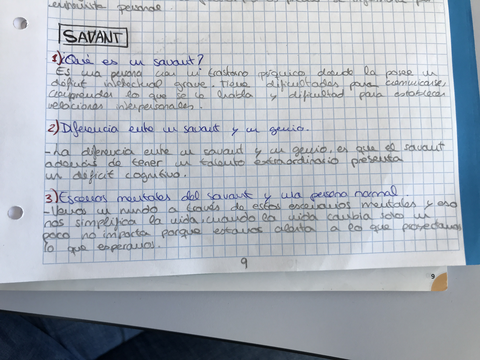 entrevista personal
SAVANT
1) ¿Qué es un savant?
Es una persona con un trastorno psíquico donde la posee un
déficit intelectual grave. Tiene dificultades para comunicarse,
comprender lo que se le habla y dificultad para establecer
relaciones interpersonales.
2) Diferencia entre un savant y un genio.
- La diferencia entre un savant y un genio, es que el savant
además de tener un talento extraordinario presenta
un déficit cognitivo.
3) Escenarios mentales del savant y una persona normal.
- Vemos un mundo a través de estos escenarios mentales y eso
nos simplifica la vida, cuando la vida cambia solo un
poco no importa porque estamos alerta a lo que proyectamos
lo que esperamos.
9
9